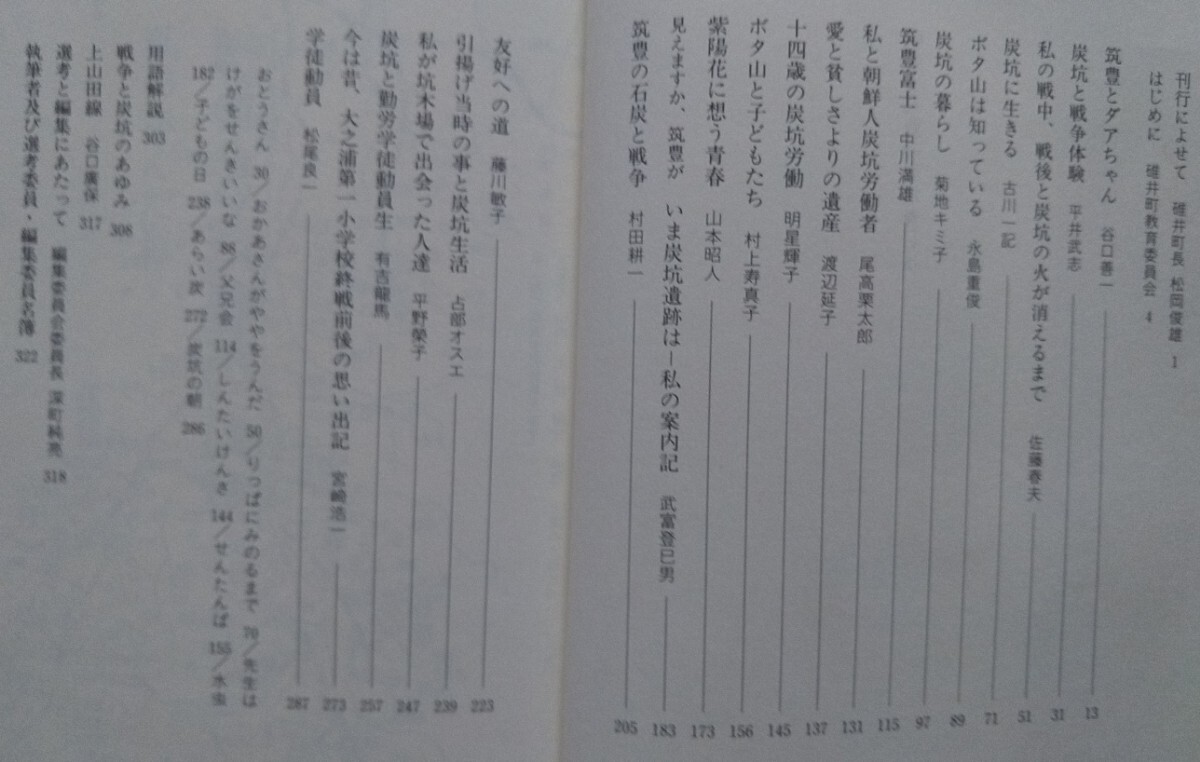 刊行によせて　碓井町長 松岡俊雄 1
はじめに　碓井町教育委員会 4
筑豊とダアちゃん　谷口善一 13
炭坑と戦争体験　平井武志 31
私の戦中、戦後と炭坑の火が消えるまで　佐藤春夫 51
炭坑に生きる　古川一記 71
ボタ山は知っている　永島重俊 89
炭坑の暮らし　菊地キミ子 97
筑豊富士　中川満雄 115
私と朝鮮人炭坑労働者　尾高栗太郎 131
愛と貧しさよりの遺産　渡辺延子 137
十四歳の炭坑労働　明星輝子 145
ボタ山と子どもたち　村上寿真子 156
紫陽花に想う青春　山本昭人 173
見えますか、筑豊が　いま炭坑遺跡は－私の案内記　武富登巳男 183
筑豊の石炭と戦争　村田耕一 205
友好への道　藤川敏子 223
引揚げ当時の事と炭坑生活　占部オスエ 239
私が坑木場で出会った人達　平野榮子 247
炭坑と勤労学徒動員生　有吉龍馬 257
今は昔、大之浦第一小学校終戦前後の思い出記　宮崎浩一 273
学徒動員　松尾良一 287
おとうさん 30／おかあさんがややをうんだ 50／りっぱにみのるまで 70／先生は
けがをせんきいいな 88／父兄会 114／しんたいけんさ 144／せんたんば 155／水虫
182／子どもの日 238／あらい炭 272／炭坑の朝 286
用語解説 303
戦争と炭坑のあゆみ 308
上山田線　谷口廣保 317
選考と編集にあたって　編集委員会委員長 深町純亮 318
執筆者及び選考委員・編集委員名簿 322